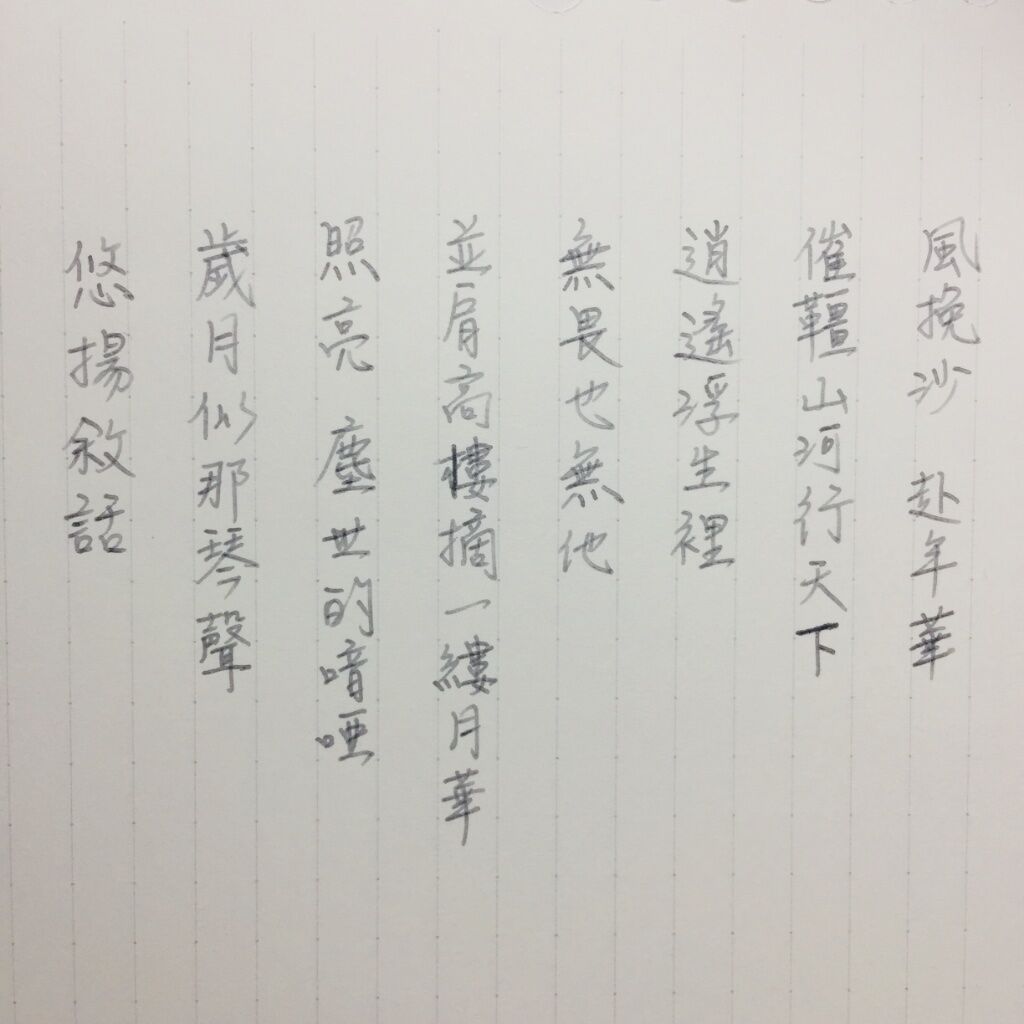 風挽沙 赴年華
催韁山河行天下
逍遙浮生裡
無畏也無他
並肩高樓摘一縷月華
照亮 塵世的喑啞
歲月似那琴聲
悠揚敘話